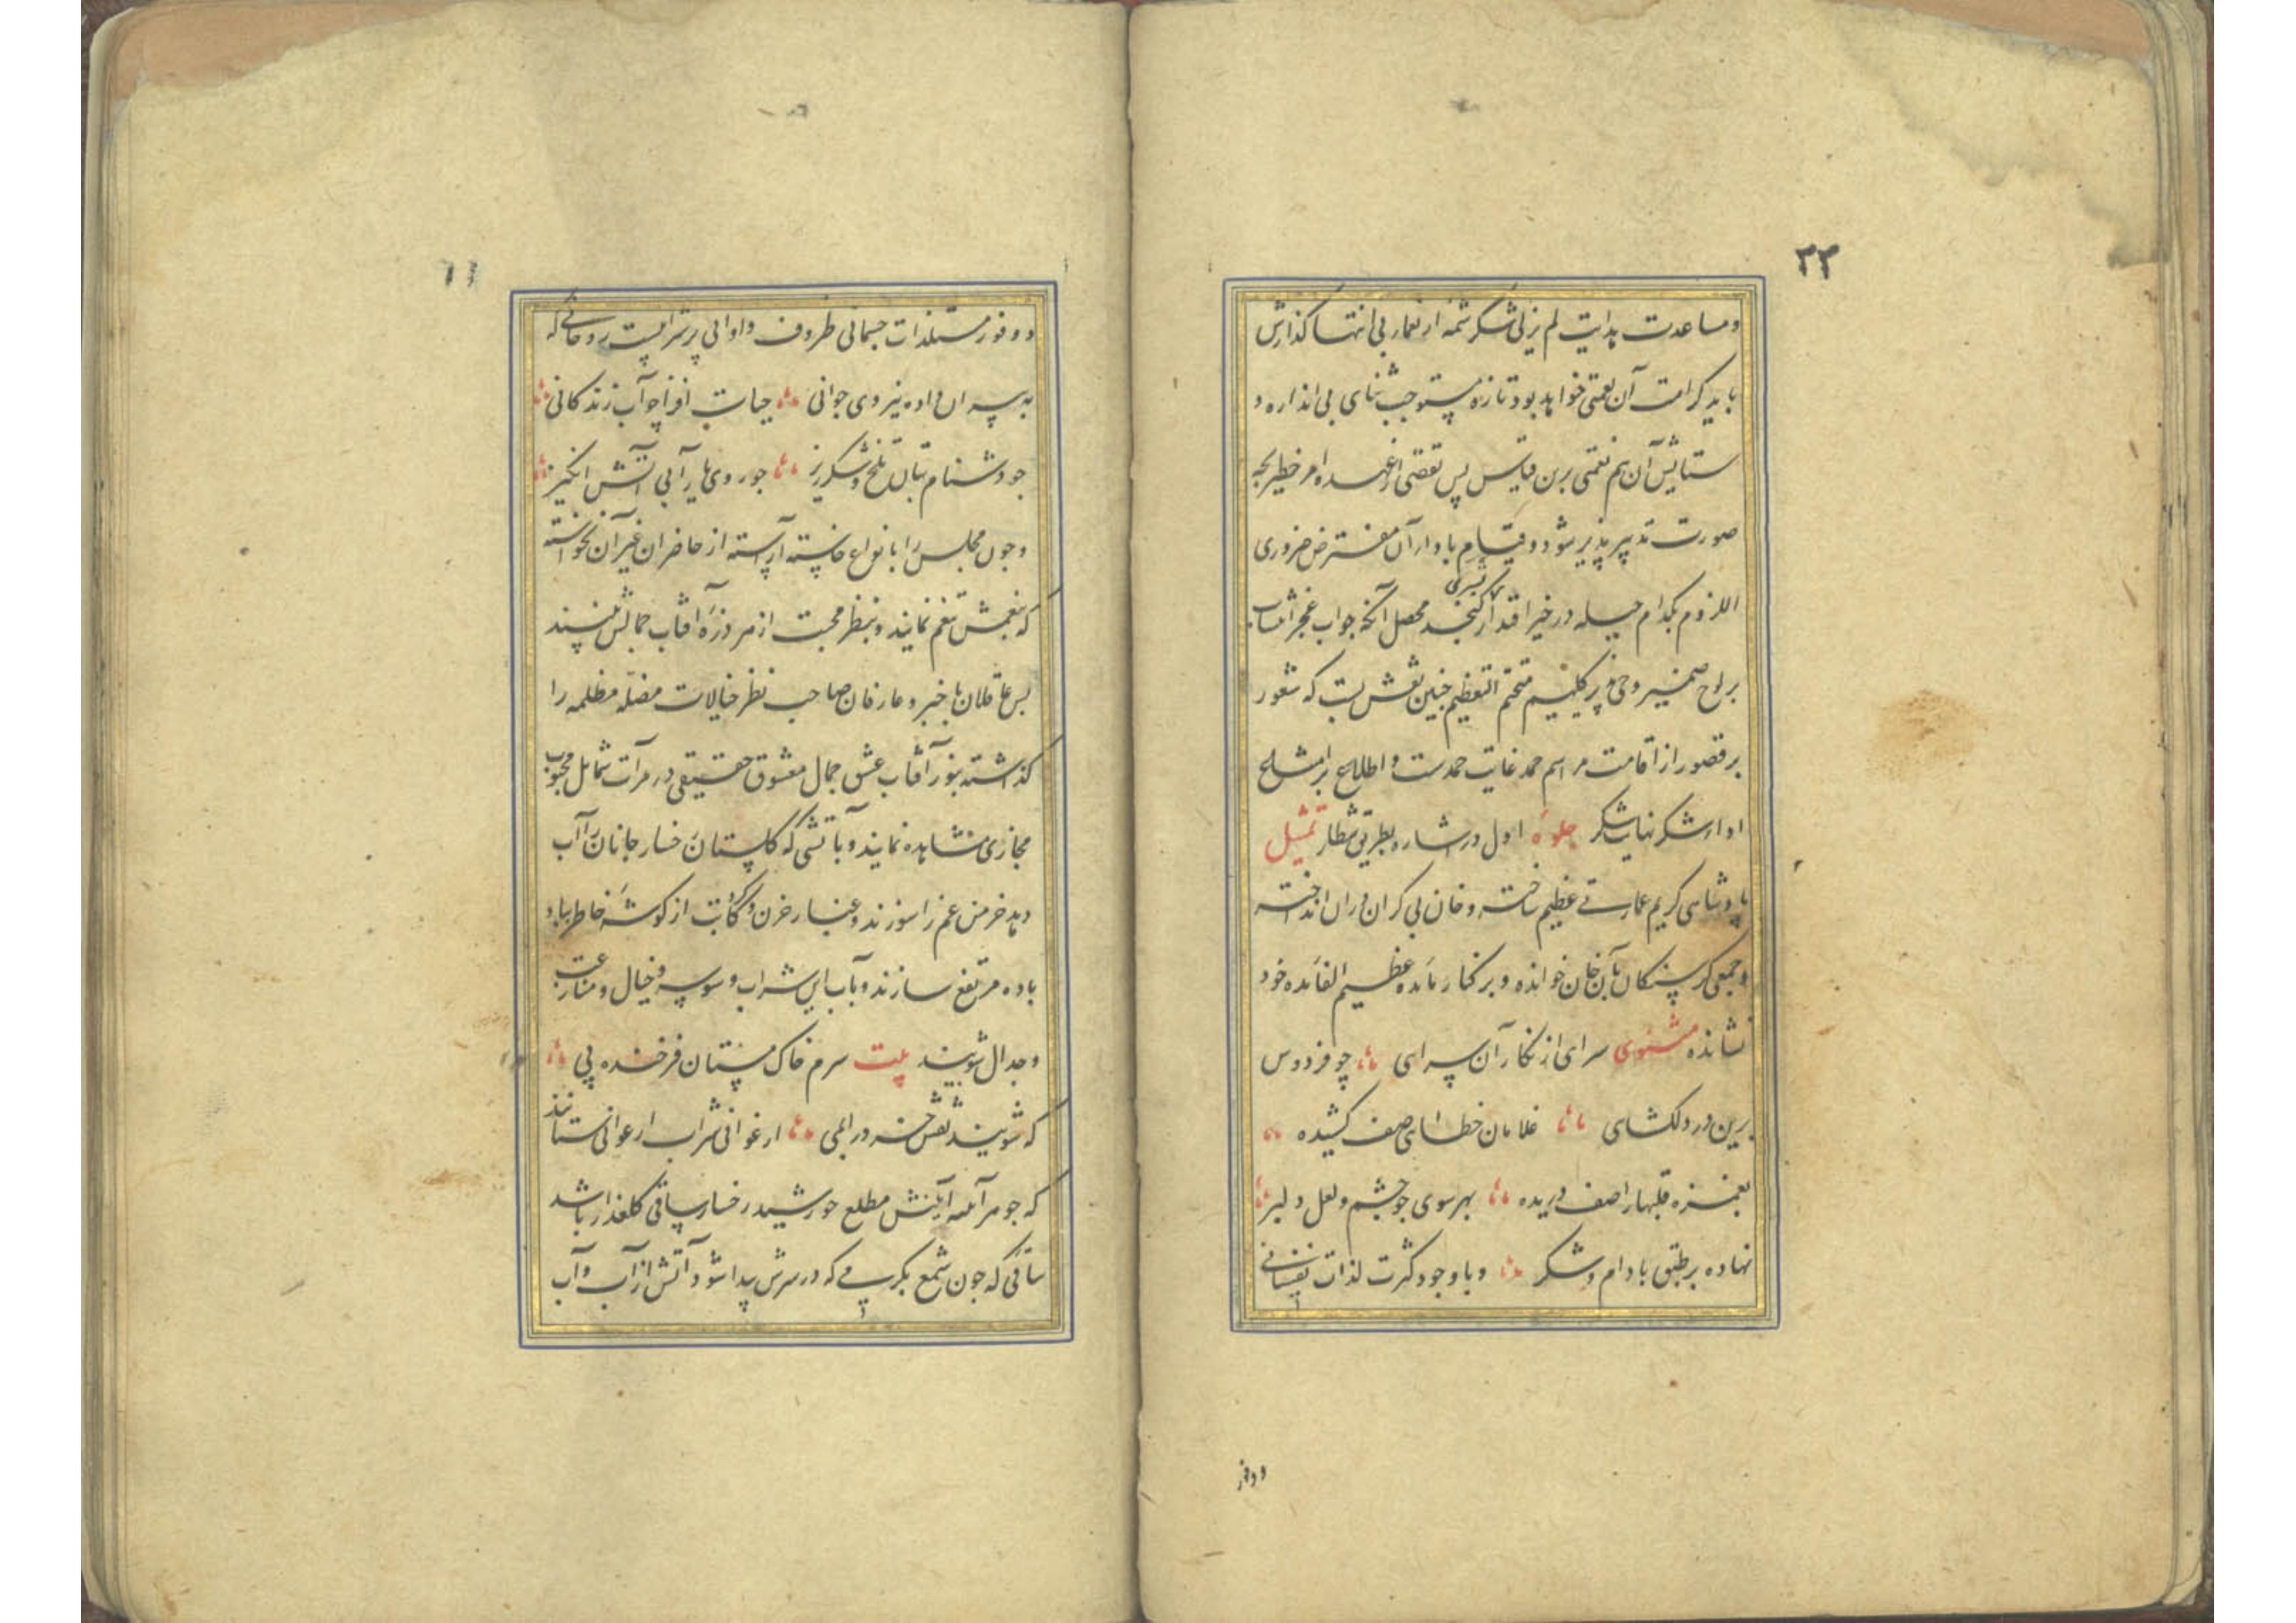 ۲۳
و مساعدت هدایت لم یزلی شکر شمه از نعمای بی انتها گذارش
باید کرامت آن نعمتی خواهد بود تازه مستوجب ثنای بی اندازه و
ستایش آن هم نعمتی برین قیاس پس تقصی از عهده امر خطیر بچه
صورت تدبیر پذیر شود و قیام باداء آن مفترض ضروری
اللزوم بکدام حیله در خیر اقتدار بشری گنجد محصل آنکه جواب عجز انتساب
بر لوح ضمیر و حی پذیر کلیم متحتم التعظیم چنین نقش بست که شعور
بر قصور از اقامت مراسم حمد غایت حمدست و اطلاع بر
اداء شکر نهایت شکر جلوه اول در اشاره بطریق شطار تمثیل
پادشاهی کریم عمارتی عظیم ساخته و خان بی کران در ان انداخته
و جمعی گرسنگان بآن خان خوانده و بر کنار مائده عظیم الفائده خود
نشانده مثنوی سرای از نگار آن سرای چو فردوس
برین در دلکشای غلامان خطای صف کشیده
بغمزه قلبها را صف دریده بهر سوی جو چشم و لعل دلبر
نهاده بر طبق بادام و شکر و با وجود کثرت لذات نفسانی
و وفور
و وفور مستلذات جسمانی ظروف و اوانی پر شرابیست روحانی که
به پیران داده نیروی جوانی حیات افزا چو آب زندگانی
جو دشنام بتان تلخ و شکرریز جو روی یار آبی آتش انگیز
و جون مجلس را بانواع خاسته آراسته از حاضران غیر آن نخواسته
که بنعمتش تنعم نمایند و بنظر محبت از هر ذره آفتاب جمالش بینند
پس عاقلان باخبر و عارفان صاحب نظر خیالات مضله مظلمه را
گذاشته بنور آفتاب عشق جمال معشوق حقیقی در مرآت شمایل محبوب
مجازی مشاهده نمایند و بآتشی که گلستان رخسار جانان را آب
دهد خرمن غم را سوزند و غبار حزن و کآبت از گوشه خاطر بباد
باده مرتفع سازند و بآب این شراب وسوسه و خیال و منازعت
و جدال شویند بیت سرم خاک مستان فرخنده پی
که شویند نقش خرد را بمی ارغوانی شراب ارغوانی ستانند
که جوهر آینه آیینش مطلع خورشید رخسار ساقی گلعذار باشد
ساقی که جون شمع بکر می که در سرش پیدا شود آتش از آب و آب